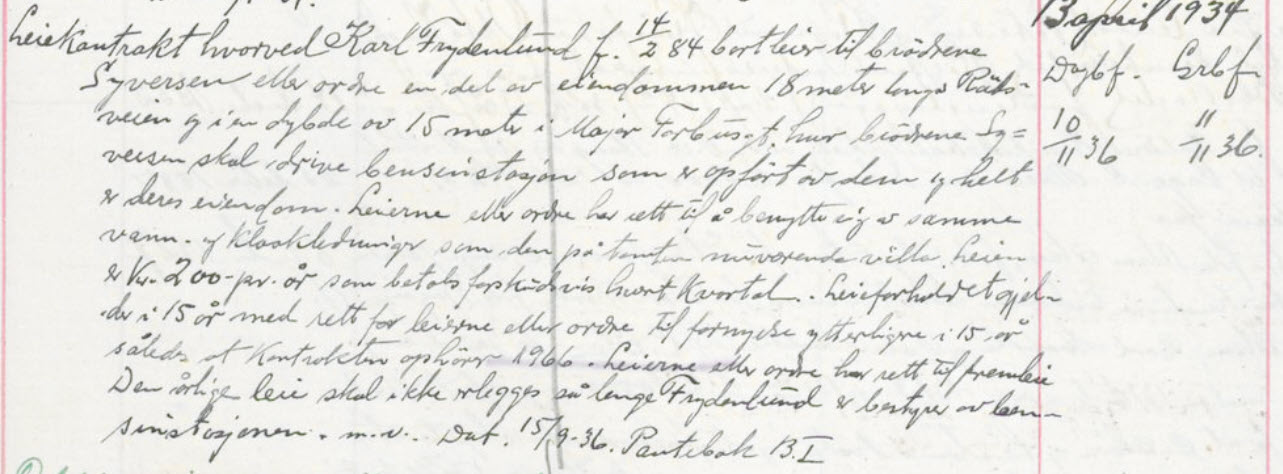 13 april 1934
Leiekontrakt hvorved Karl Frydenlund f. 14/2 84 bortleier til brødrene
Syversen eller ordre en del av eiendommen 18 meter langs Riks-
veien og i en dybde av 15 meter i Major Forbusgt. hvor brødrene Sy=
versen skal drive bensinstasjon som er opført av dem og helt
er deres eiendom. Leierne eller ordre har rett til å benytte sig av samme
vann- og kloakledninger som den på tomten nuværende villa. Leien
er kr. 200- pr. år som betales forskudsvis hvert kvartal. Leieforholdet gjel-
der i 15 år med rett for leierne eller ordre til fornyelse ytterligere i 15 år
således at kontrakten ophører 1966. Leierne eller ordre har rett til fremleie
Den årlige leie skal ikke erlegges så lenge Frydenlund er bestyrer av ben-
sinstasjonen. m.v. Dat. 15/9-36. Pantebok B.I
Dagbf. Grbf.
10/11 36 11/11 36.